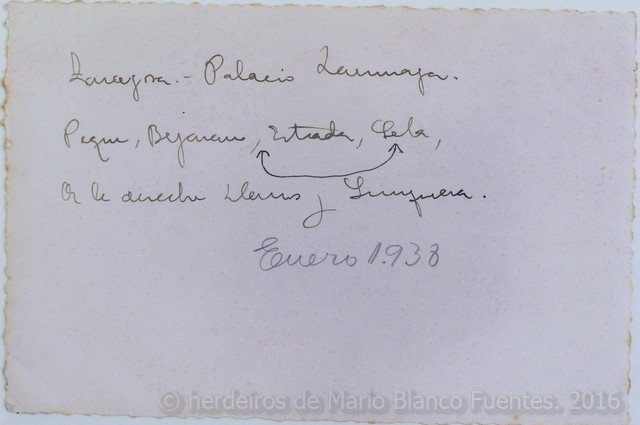 Zaragoza.- Palacio Larrinaga.
Peque, Bejarano, Estrada, Cela,
A la derecha Llanos y Junquera.
Enero 1.938
© herdeiros de Mario Blanco Fuentes. 2016